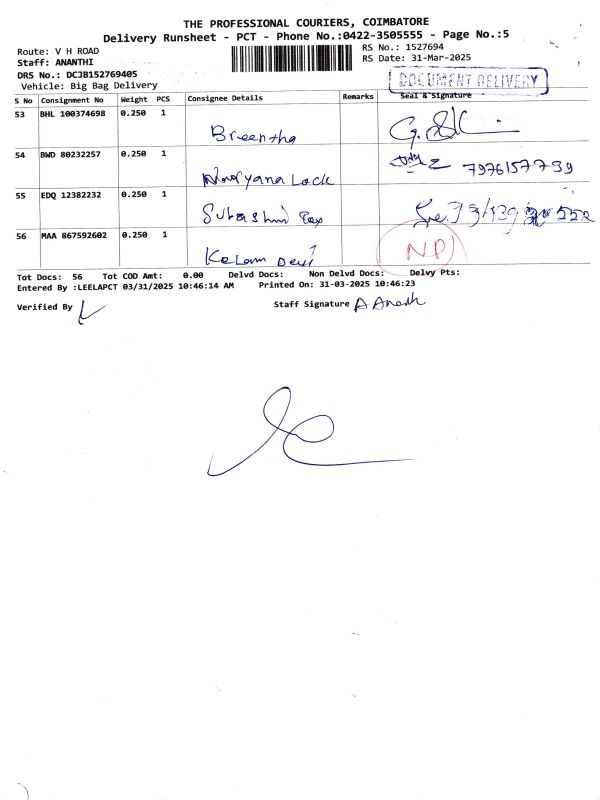 THE PROFESSIONAL COURIERS, COIMBATORE
Delivery Runsheet - PCT - Phone No.:0422-3505555 - Page No.:5
Route: V H ROAD
RS No.: 1527694
Staff: ANANTHI
RS Date: 31-Mar-2025
DRS No.: DCJB152769405
Vehicle: Big Bag Delivery
DOCUMENT DELIVERY
S No Consignment No Weight PCS Consignee Details Remarks Seal & Signature
53 BHL 100374698 0.250 1
Breentha
54 BWD 80232257 0.250 1
7976157739
Narayana Lock
55 EDQ 12382232 0.250 1
Subashini
56 MAA 867592602 0.250 1
NP
Kalam Devi
Tot Docs: 56 Tot COD Amt: 0.00 Delvd Docs: Non Delvd Docs: Delvy Pts:
Entered By :LEELAPCT 03/31/2025 10:46:14 AM Printed On: 31-03-2025 10:46:23
Verified By
Staff Signature A Ananth